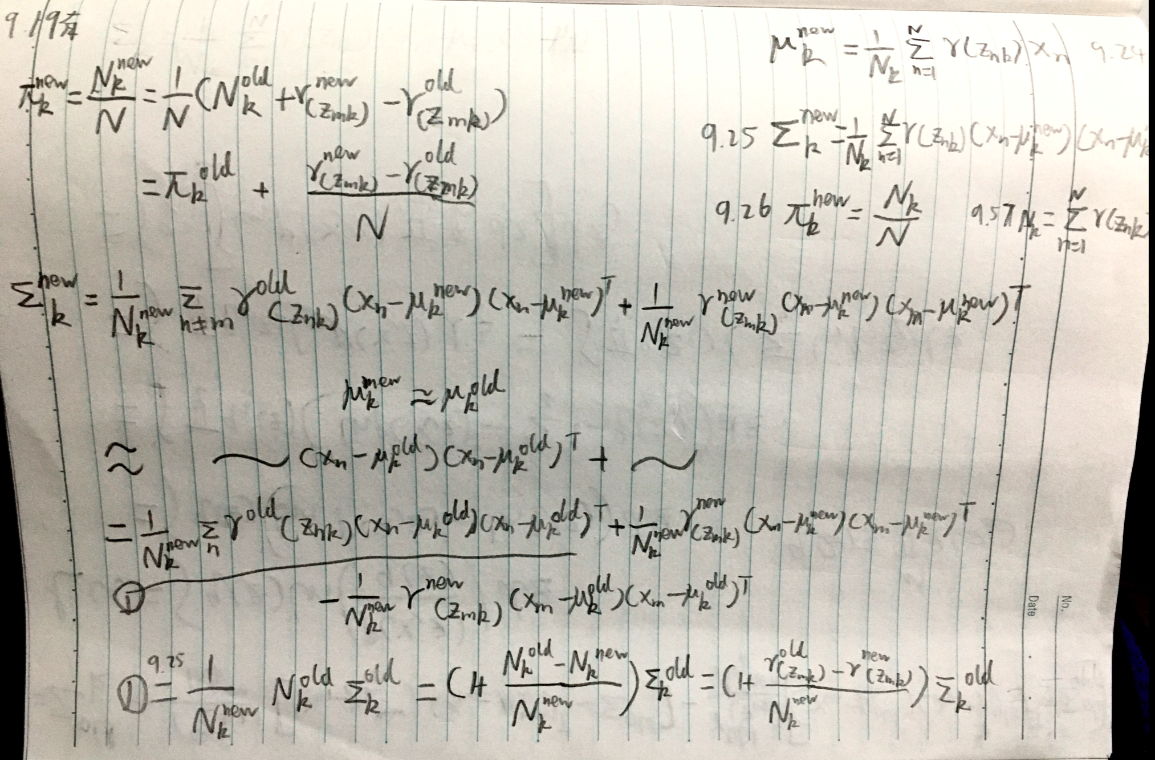 9.19有
μ_k^{new} = \frac{1}{N_k} \sum_{n=1}^{N} γ(z_{nk}) x_n 9.24
π_k^{new} = \frac{N_k^{new}}{N} = \frac{1}{N}(N_k^{old} + γ^{new}(z_{mk}) - γ^{old}(z_{mk}))
9.25 Σ_k^{new} = \frac{1}{N_k} \sum_{n=1}^{N} γ(z_{nk}) (x_n - μ_k^{new}) (x_n - μ_k
= π_k^{old} + \frac{γ^{new}(z_{mk}) - γ^{old}(z_{mk})}{N}
9.26 π_k^{new} = \frac{N_k}{N} 9.57 N_k = \sum_{n=1}^{N} γ(z_{nk}
Σ_k^{new} = \frac{1}{N_k^{new}} \sum_{n≠m} γ^{old}(z_{nk}) (x_n - μ_k^{new}) (x_n - μ_k^{new})^T + \frac{1}{N_k^{new}} γ^{new}(z_{mk}) (x_m - μ_k^{new}) (x_m - μ_k^{new})^T
μ_k^{new} ≈ μ_k^{old}
≈ ~ (x_n - μ_k^{old}) (x_n - μ_k^{old})^T + ~
= \frac{1}{N_k^{new}} \sum_n γ^{old}(z_{nk}) (x_n - μ_k^{old}) (x_n - μ_k^{old})^T + \frac{1}{N_k^{new}} γ^{new}(z_{mk}) (x_m - μ_k^{new}) (x_m - μ_k^{new})^T
① - \frac{1}{N_k^{new}} γ^{new}(z_{mk}) (x_m - μ_k^{old}) (x_m - μ_k^{old})^T
① \overset{9.25}{=} \frac{1}{N_k^{new}} N_k^{old} Σ_k^{old} = (1 + \frac{N_k^{old} - N_k^{new}}{N_k^{new}}) Σ_k^{old} = (1 + \frac{γ^{old}(z_{mk}) - γ^{new}(z_{mk})}{N_k^{new}}) Σ_k^{old}
No.
Date